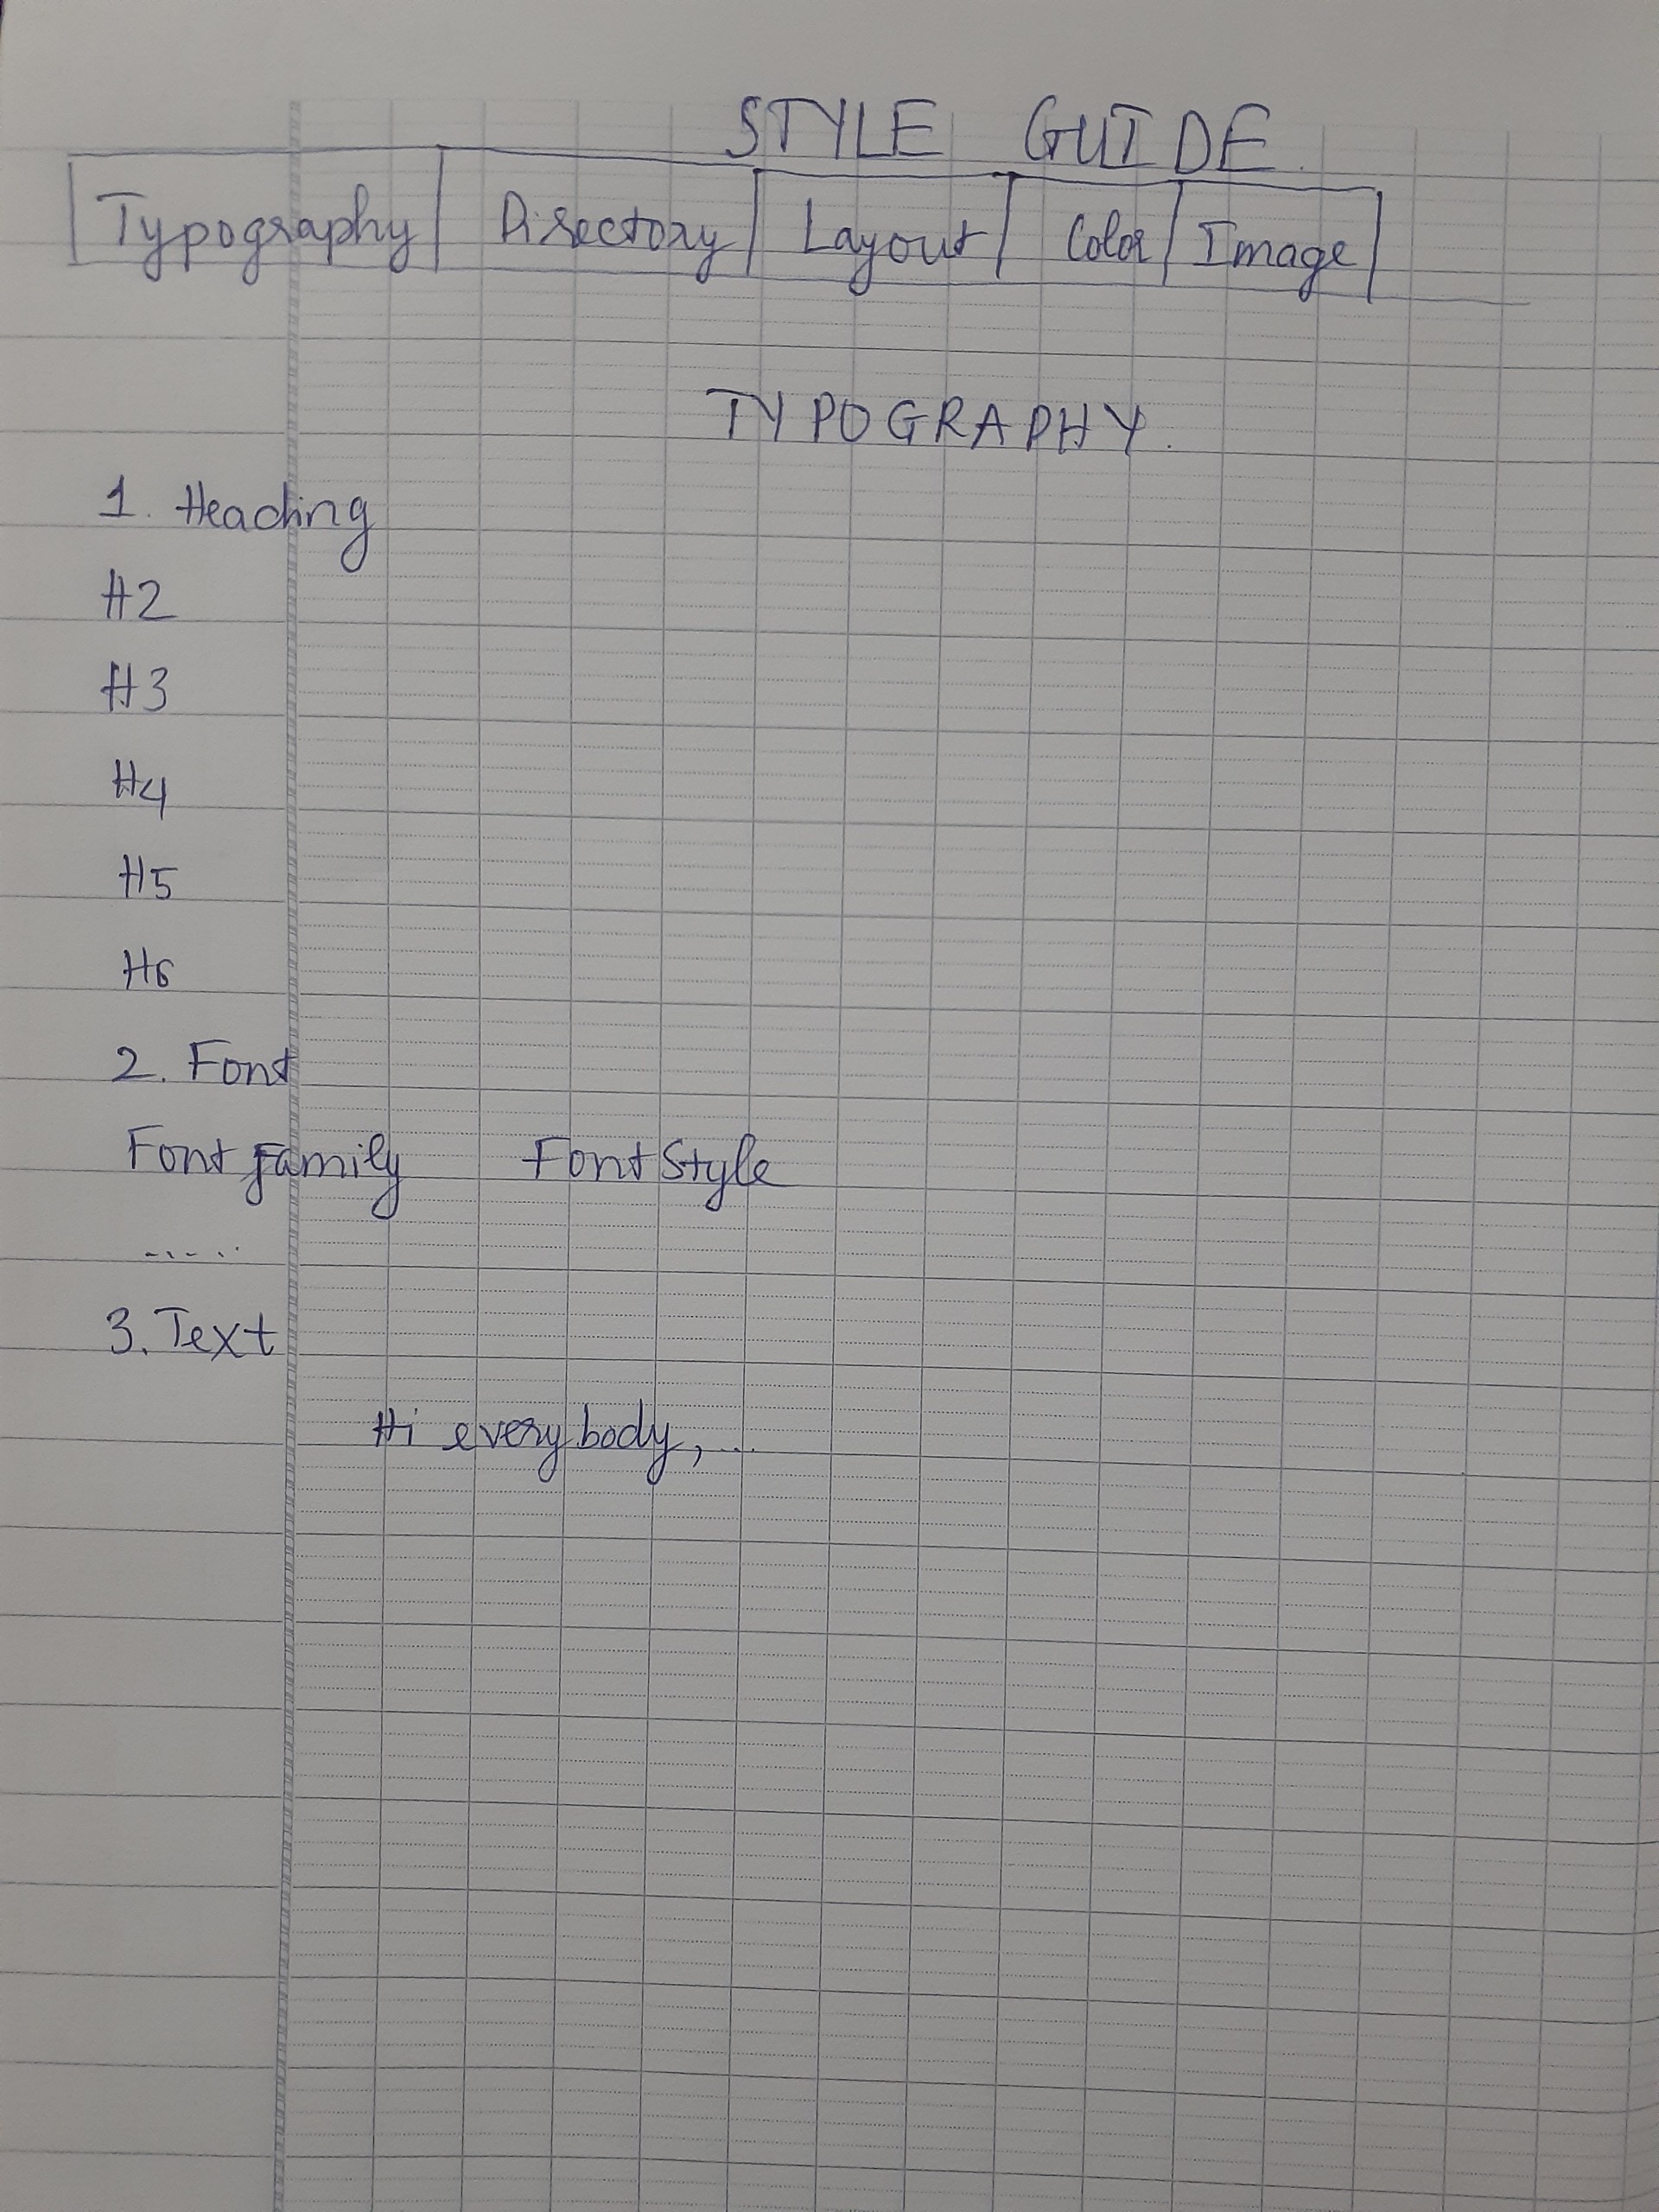 STYLE GUIDE.
Typography Directory Layout Color Image
TYPOGRAPHY.
1. Heading
H2
H3
H4
H5
H6
2. Font
Font Family Font Style
.....
3. Text
Hi everybody, ...